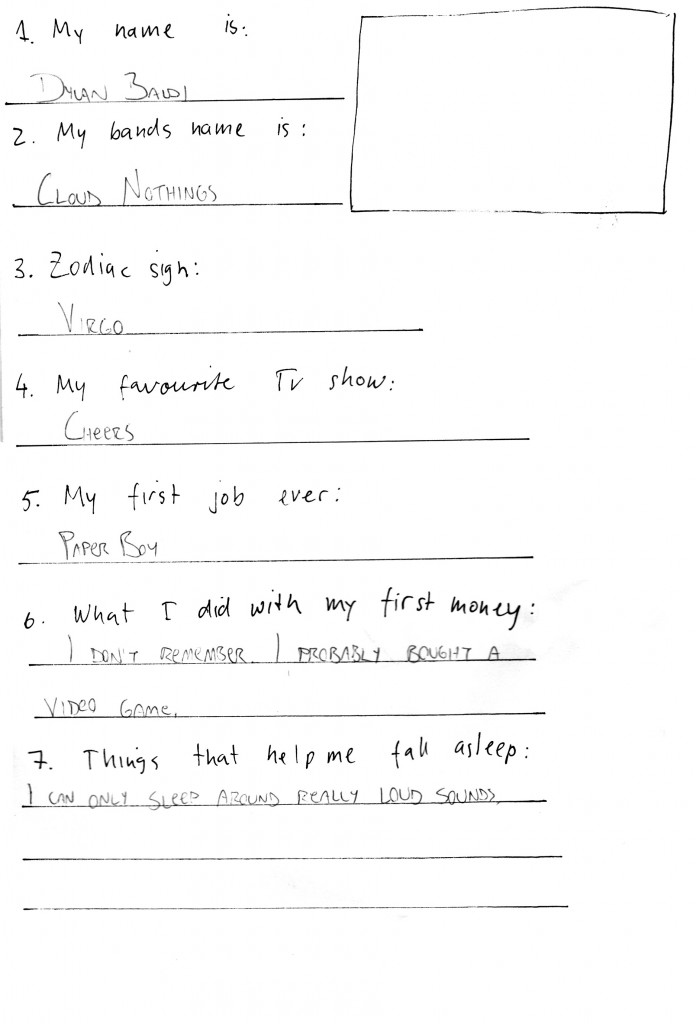 1. My name is:
DYLAN BALDI
2. My bands name is:
CLOUD NOTHINGS
3. Zodiac sign:
VIRGO
4. My favourite TV show:
CHEERS
5. My first job ever:
PAPER BOY
6. What I did with my first money:
I DON'T REMEMBER. I PROBABLY BOUGHT A
VIDEO GAME.
7. Things that help me fall asleep:
I CAN ONLY SLEEP AROUND REALLY LOUD SOUNDS.